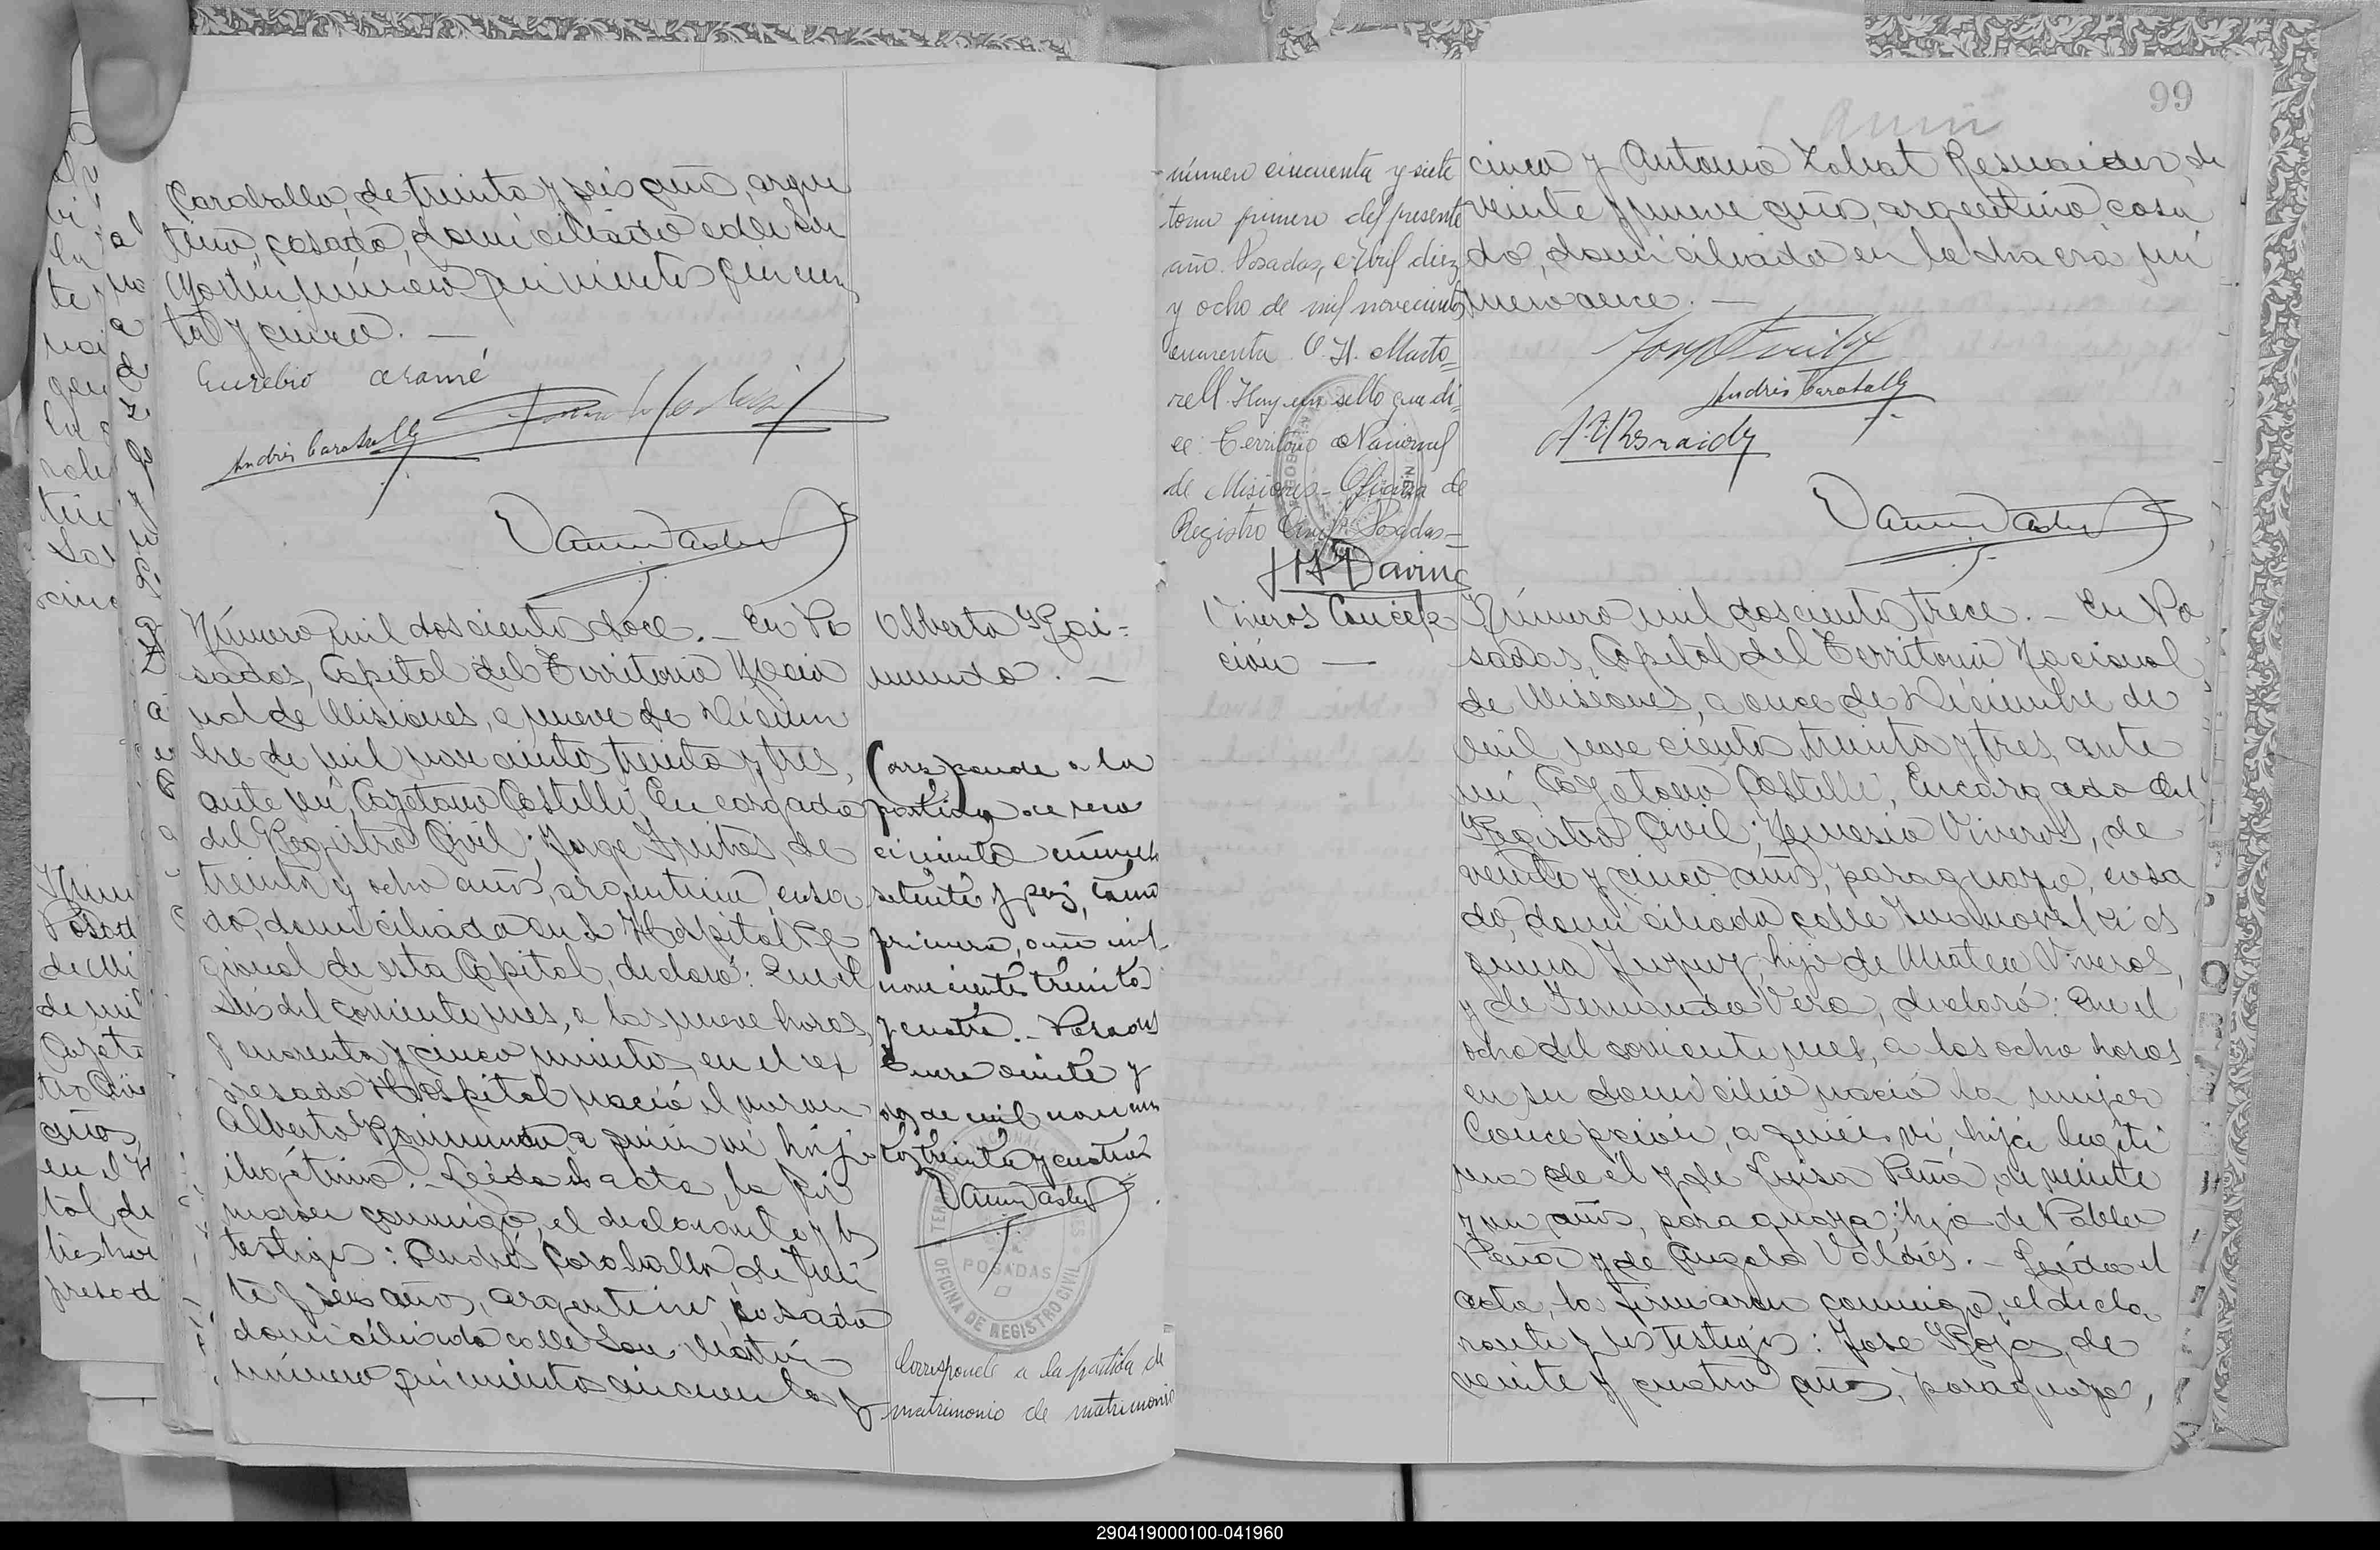 Caraballo, de treinta y seis años, argen
tino, casado, domiciliado calle San
Martín número quinientos cincuen
ta y cinco. —
Eusebio
Andrés Caraballo
Número mil doscientos doce. — En Po
sadas, Capital del Territorio Nacio
nal de Misiones, a nueve de Diciem
bre de mil novecientos treinta y tres,
ante mí, Cayetano Castelli, Encargado
del Registro Civil; Jorge Freitas, de
treinta y ocho años, argentino, casa
do, domiciliado en el Hospital Re
gional de esta Capital, declaró: Que el
seis del corriente mes, a las nueve horas
y cuarenta y cinco minutos, en el ex
presado Hospital nació el varon
Alberto Raimundo, a quien vi, hijo
ilegítimo. — Leída el acta, la fir
maron conmigo, el declarante y los
testigos: Andrés Caraballo, de trein
ta y seis años, argentino, casado
domiciliado calle San Martín
número quinientos cincuenta y
Alberto Rai=
mundo. —
Corresponde a la
partida de reco
cimiento número
setenta y seis, tomo
primero, año mil
novecientos treinta
y cuatro. — Posadas
Enero veinte y
de mil novecien
tos treinta y cuatro
POSADAS
OFICINA DE REGISTRO CIVIL
Corresponde a la partida de
matrimonio de matrimonio
99
número cincuenta y siete
tomo primero del presente
año. Posadas, Abril diez
y ocho de mil novecientos
cuarenta. O. H. Marto=
rell. Hay un sello que di=
ce: Territorio Nacional
de Misiones — Oficina de
Registro Civil Posadas —
cinco y Antonio Zobat Resnaider, de
veinte y nueve años, argentino, casa
do, domiciliado en la chacra nú
mero once. —
Andrés Caraballo
Viveros Concep
ción —
Número mil doscientos trece. — En Po
sadas, Capital del Territorio Nacional
de Misiones, a once de Diciembre de
mil novecientos treinta y tres, ante
mí, Cayetano Castelli, Encargado del
Registro Civil; Nemesio Viveros, de
veinte y cinco años, paraguayo, casa
do, domiciliado calle es
quina Jujuy, hijo de Mateo Viveros,
y de Fernanda Vera, declaró: Que el
ocho del corriente mes, a las ocho horas
en su domicilio nació la mujer
Concepción, a quien vi, hija legíti
ma de él y de Luisa Peña, de veinte
y un años, paraguaya; hija de Pablo
Peña y de Angela Valdés. — Leída el
acta, la firmaron conmigo, el decla
rante y los testigos: José Rojas, de
veinte y cuatro años, paraguayo,
290419000100-041960